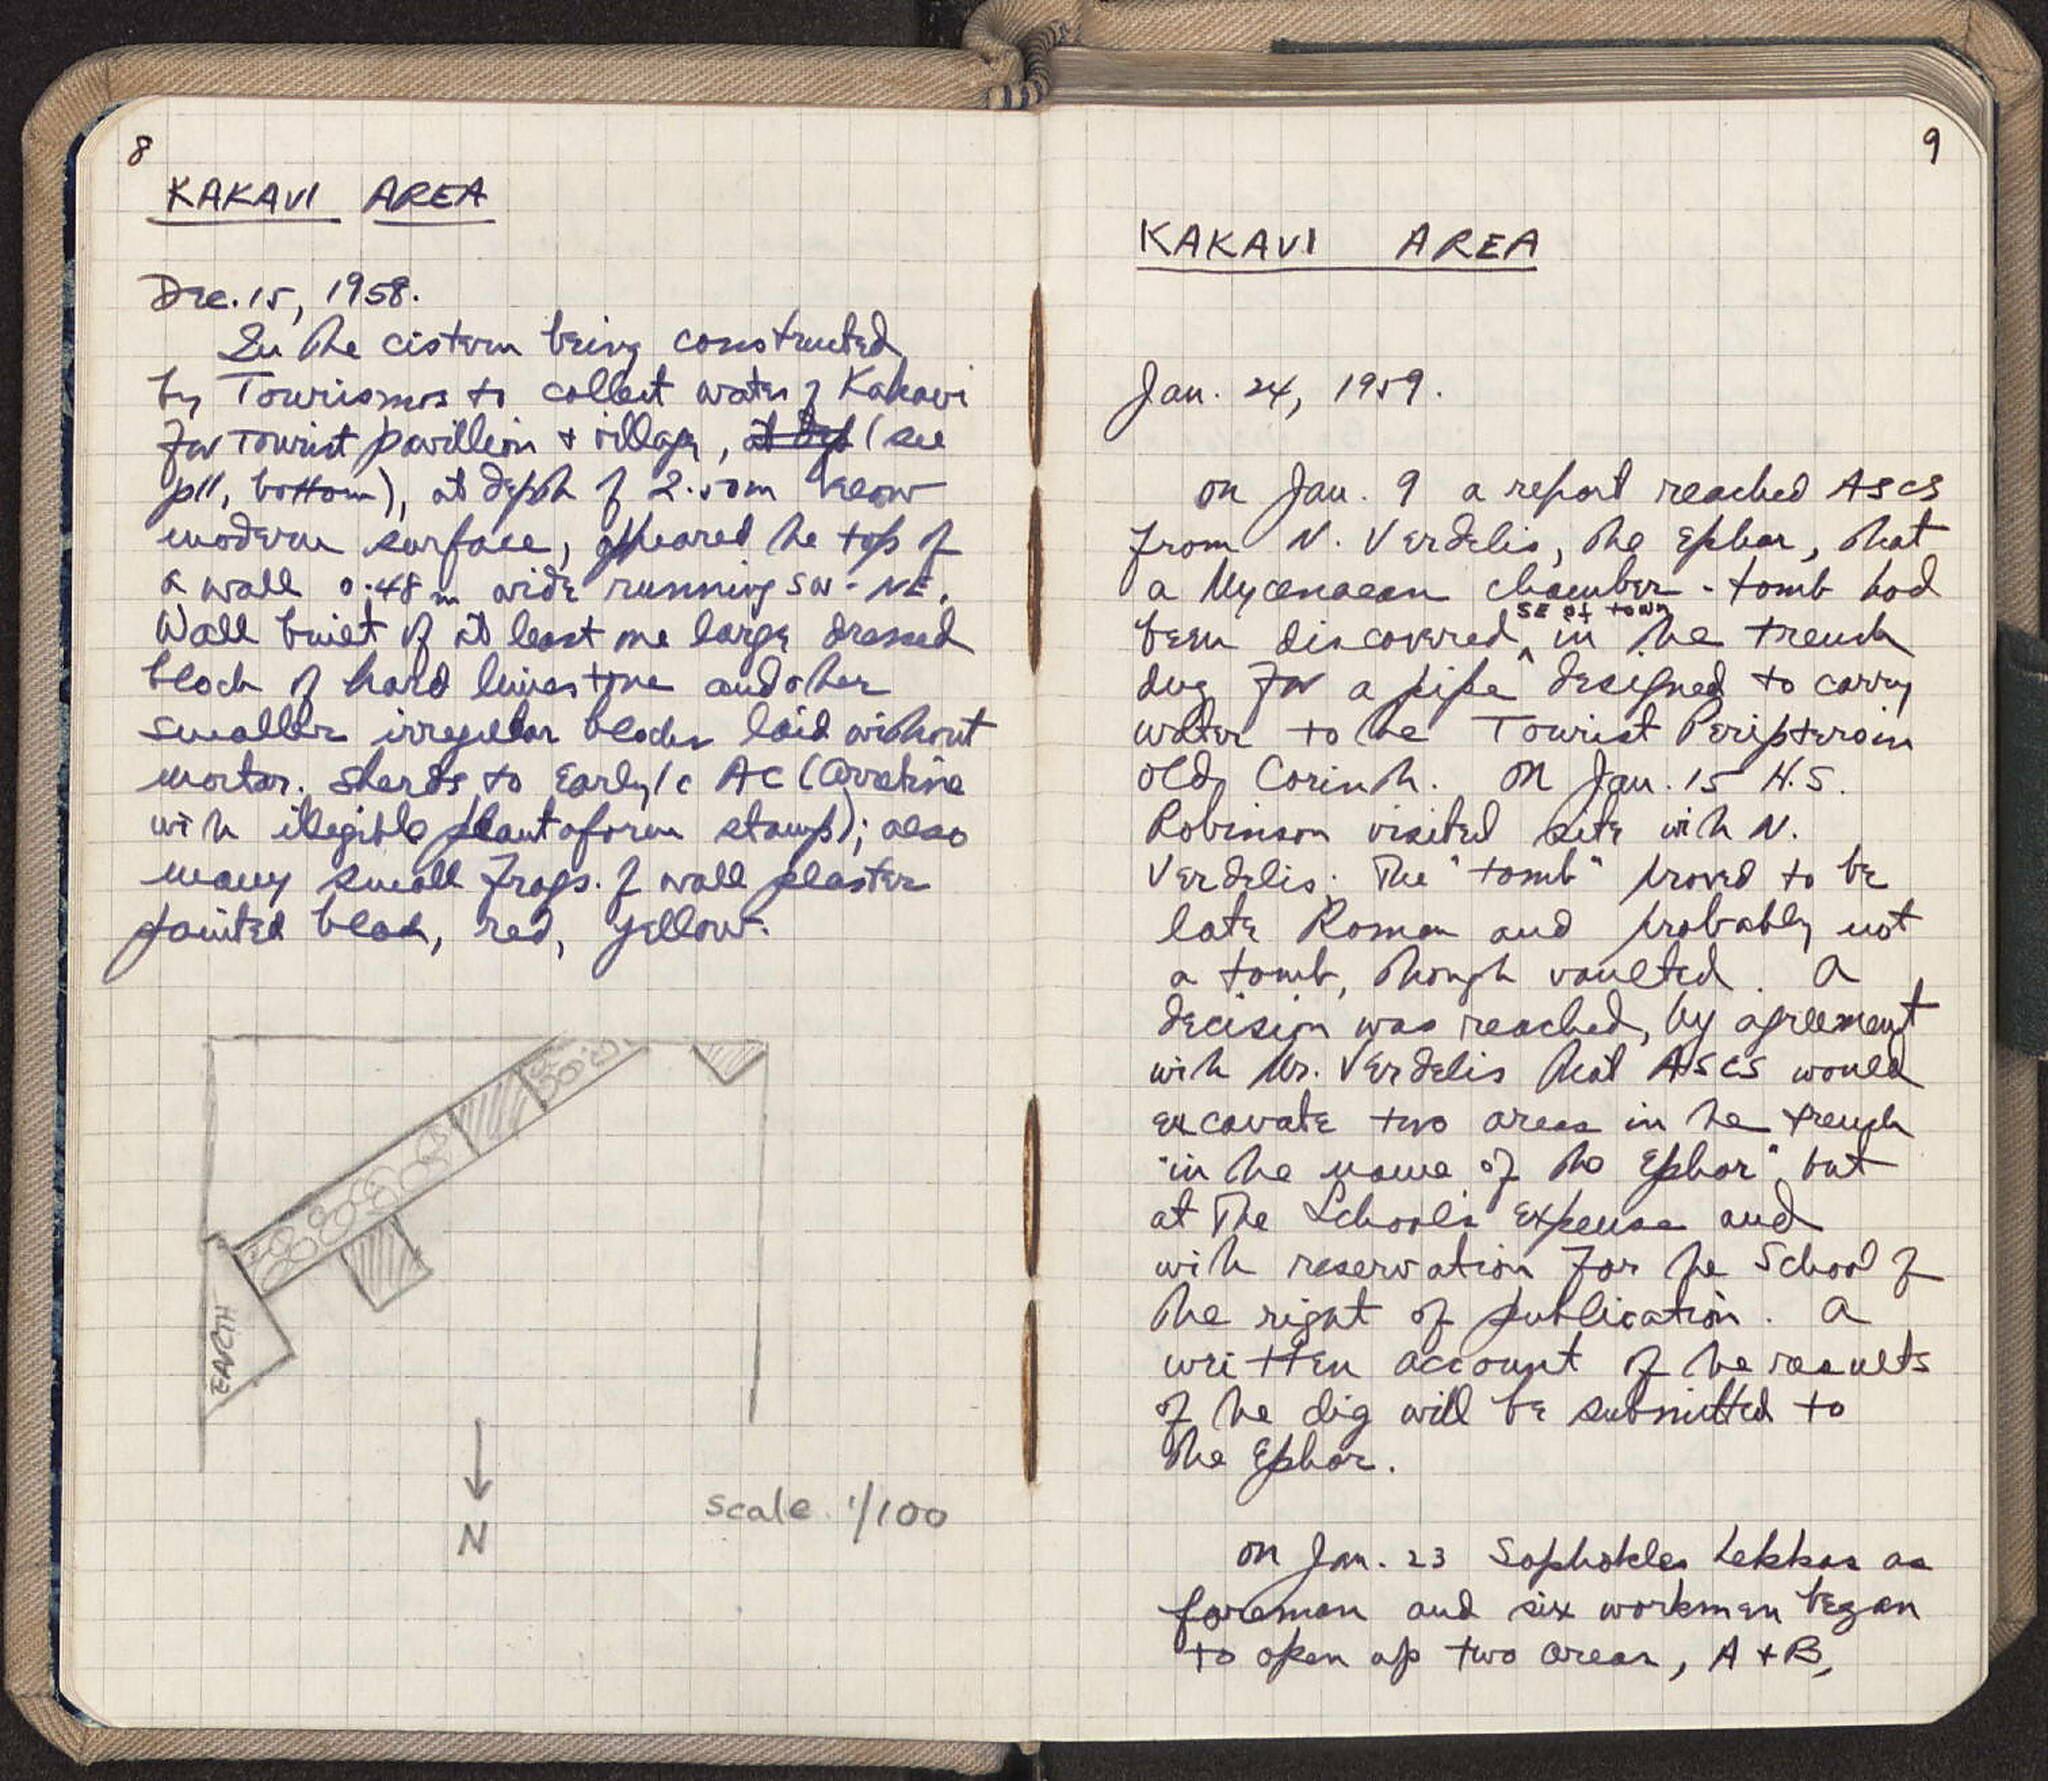 8
KAKAVI AREA
Dec. 15, 1958.
In the cistern being constructed
by Tourismos to collect water of Kakavi
for Tourist pavillion + village, at dep (see
p11, bottom), at depth of 2.50m below
modern surface, appeared the top of
a wall 0.48m wide running SW-NE.
Wall built of at least one large dressed
block of hard limestone and other
smaller irregular blocks laid without
mortar. Sherds to Early 1c AC (Arretine
with illegible plantaform stamp); also
many small frags. of wall plaster
painted black, red, yellow.
EARTH
N
scale 1/100
9
KAKAVI AREA
Jan. 24, 1959.
On Jan. 9 a report reached ASCS
from N. Verdelis, the Ephor, that
a Mycenaean chamber-tomb had
SE of town
been discovered in the trench
dug for a pipe designed to carry
water to the Tourist Peripteroin
Old Corinth. On Jan. 15 H.S.
Robinson visited site with N.
Verdelis. The "tomb" proved to be
late Roman and probably not
a tomb, though vaulted. A
decision was reached, by agreement
with Mr. Verdelis that ASCS would
excavate two areas in the trench
"in the name of the Ephor" but
at The School's expense and
with reservation for the School of
the right of publication. A
written account of the results
of the dig will be submitted to
the Ephor.
On Jan. 23 Sophokles Lekkas as
foreman and six workmen began
to open up two areas, A + B,